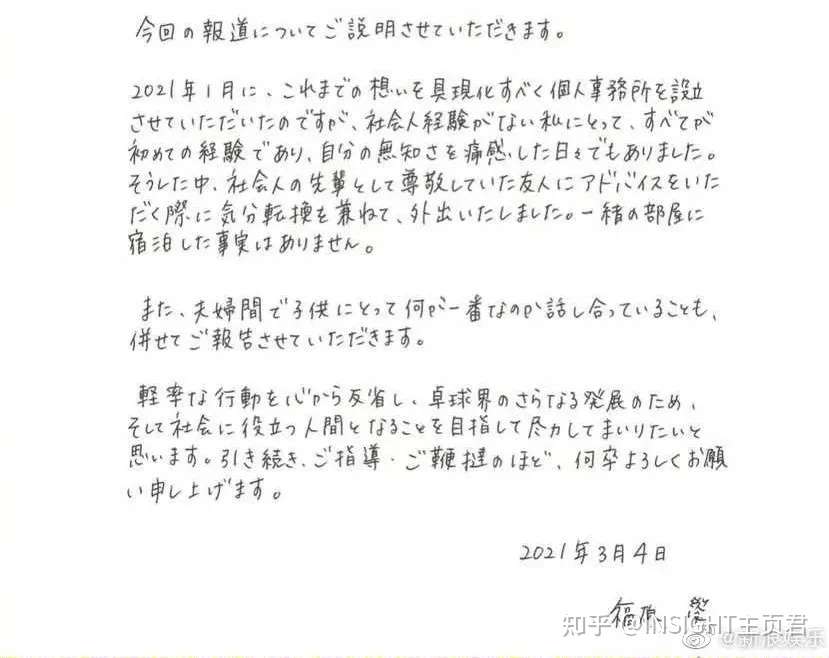 今回の報道についてご説明させていただきます。
2021年1月に、これまでの想いを具現化すべく個人事務所を設立
させていただいたのですが、社会人経験がない私にとって、すべてが
初めての経験であり、自分の無知さを痛感した日々でもありました。
そうした中、社会人の先輩として尊敬していた友人にアドバイスをいた
だく際に気分転換を兼ねて、外出いたしました。一緒の部屋に
宿泊した事実はありません。
また、夫婦間で子供にとって何が一番なのか話し合っていることも、
併せてご報告させていただきます。
軽率な行動を心から反省し、卓球界のさらなる発展のため、
そして社会に役立つ人間となることを目指して尽力してまいりたいと
思います。引き続き、ご指導・ご鞭撻のほど、何卒よろしくお願
い申し上げます。
2021年3月4日
福原 愛
知乎 @INSIGHT主页君
@新浪娱乐